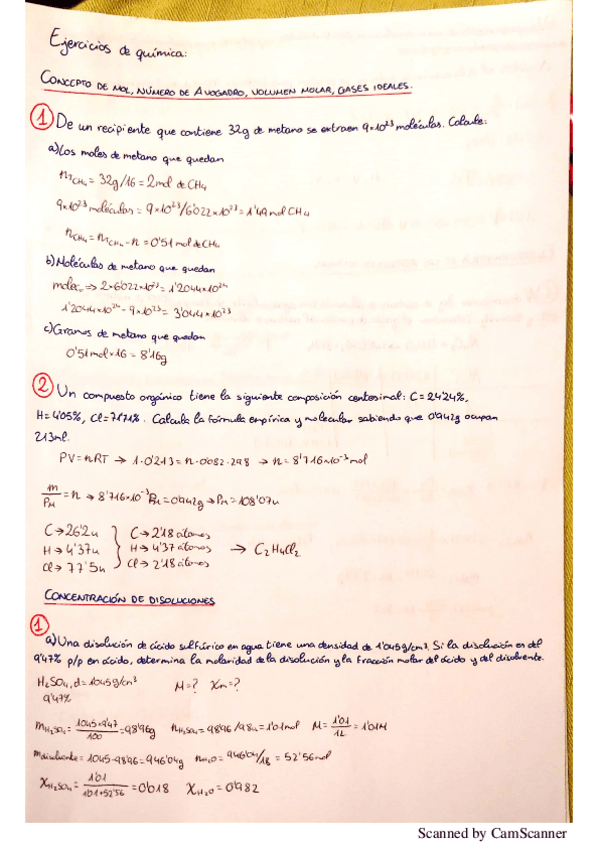 Ejercicios de química:
CONCEPTO DE MOL, NÚMERO DE AVOGADRO, VOLUMEN MOLAR, GASES IDEALES.
1 De un recipiente que contiene 32g de metano se extraen 9×10²³ moléculas. Calcule:
a) Los moles de metano que quedan
n CH₄ = 32g/16 = 2mol de CH₄
9×10²³ moléculas = 9×10²³/6'022×10²³ = 1'49 mol CH₄
n CH₄ = n CH₄ - n = 0'51 mol de CH₄
b) Moléculas de metano que quedan
molec. ⇒ 2×6'022×10²³ = 1'2044×10²⁴
1'2044×10²⁴ - 9×10²³ = 3'044×10²³
c) Gramos de metano que quedan
0'51mol×16 = 8'16g
2 Un compuesto orgánico tiene la siguiente composición centesimal: C = 24'24%,
H = 4'05%, Cl = 71'71%. Calcula la fórmula empírica y molecular sabiendo que 0'942g ocupan
213ml.
PV = nRT → 1·0'213 = n·0'082·298 → n = 8'716×10⁻³ mol
m/PM = n → 8'716×10⁻³ PM = 0'942g → PM = 108'07u
C → 26'2u C → 2'18 átomos
H → 4'37u H → 4'37 átomos → C₂H₄Cl₂
Cl → 77'5u Cl → 2'18 átomos
CONCENTRACIÓN DE DISOLUCIONES
1
a) Una disolución de ácido sulfúrico en agua tiene una densidad de 1'045g/cm³. Si la disolución es del
9'47% p/p en ácido, determina la molaridad de la disolución y la fracción molar del ácido y del disolvente.
H₂SO₄, d = 1'045g/cm³ M = ? Xn = ?
9'47%
m H₂SO₄ = 1045×9'47/100 = 98'96g n H₂SO₄ = 98'96/98u = 1'01mol M = 1'01/1L = 1'01M
m disolvente = 1045-98'96 = 946'04g n H₂O = 946'04/18 = 52'56mol
X H₂SO₄ = 1'01/1'01+52'56 = 0'018 X H₂O = 0'982
Scanned by CamScanner